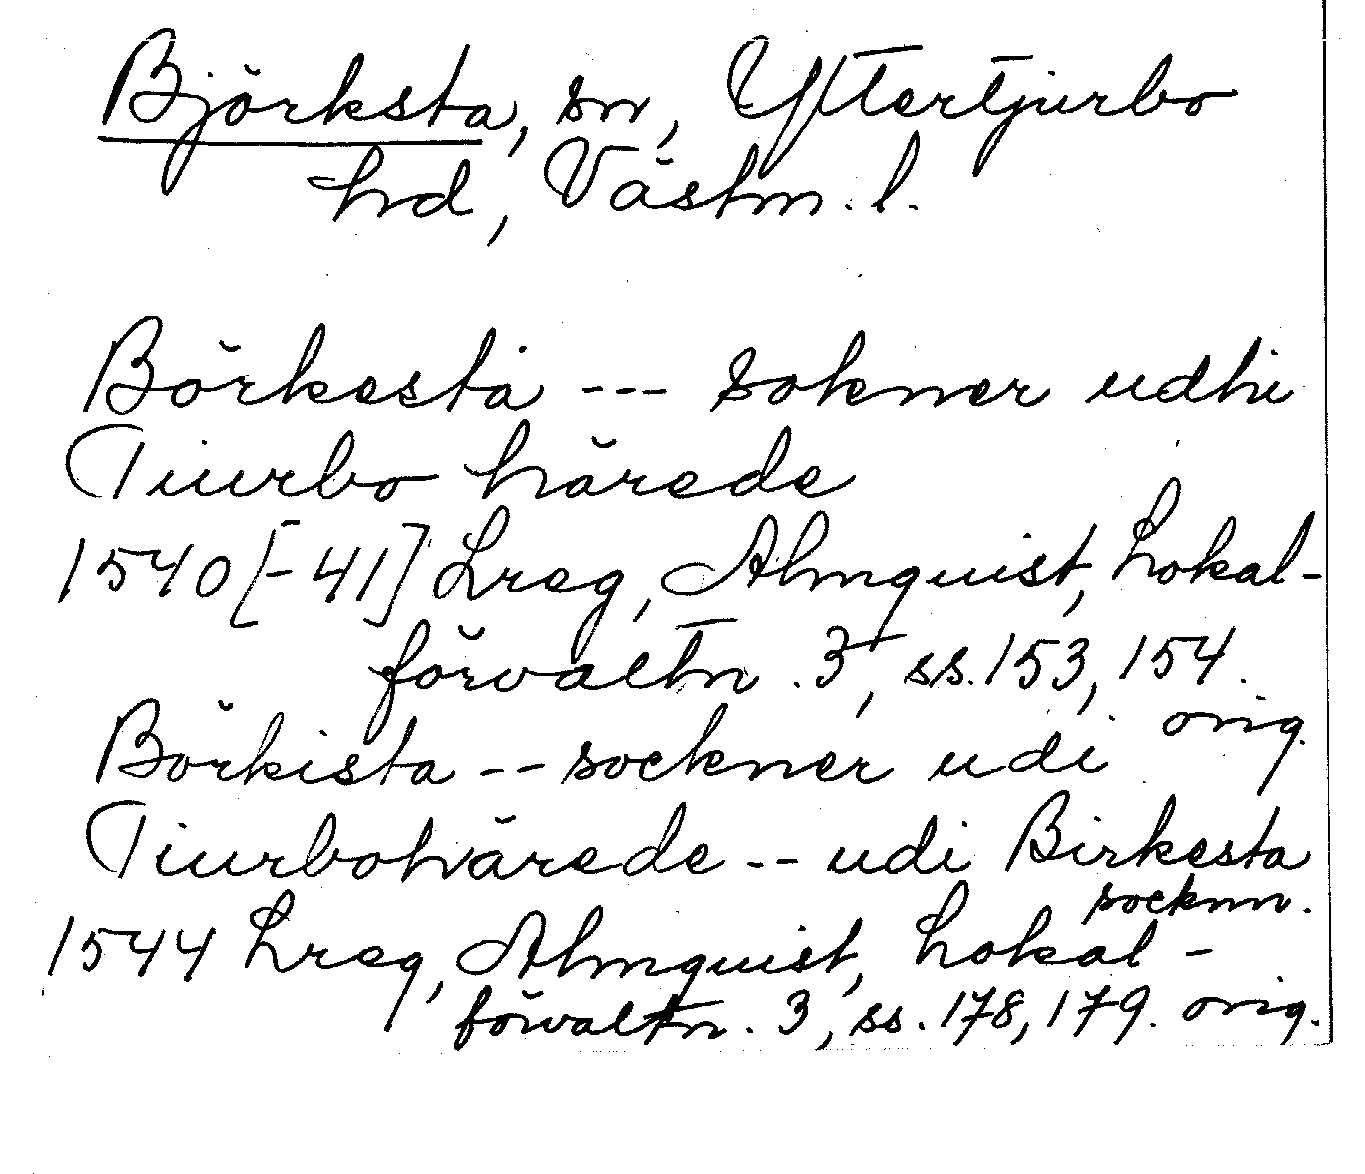 Björksta, sn, Yttertjurbo
hd, Västm. l.
Börkesta --- sokner udhi
Tiurbo härede
1540[-41] Lreg, Almquist, Lokal-
förvaltn. 3, ss. 153, 154.
orig.
Börkista -- sockner udi
Tiurbohärede -- udi Birkesta
socknn.
1544 Lreg, Almquist, Lokal-
förvaltn. 3, ss. 178, 179. orig.